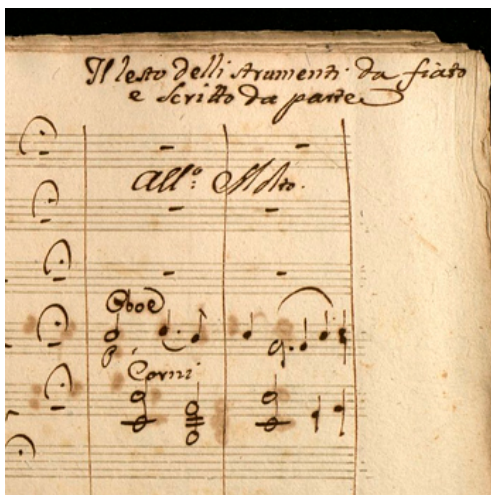 Il resto delli strumenti da fiato
e Scritto da parte
All.º Molto.
Oboe
p
Corni